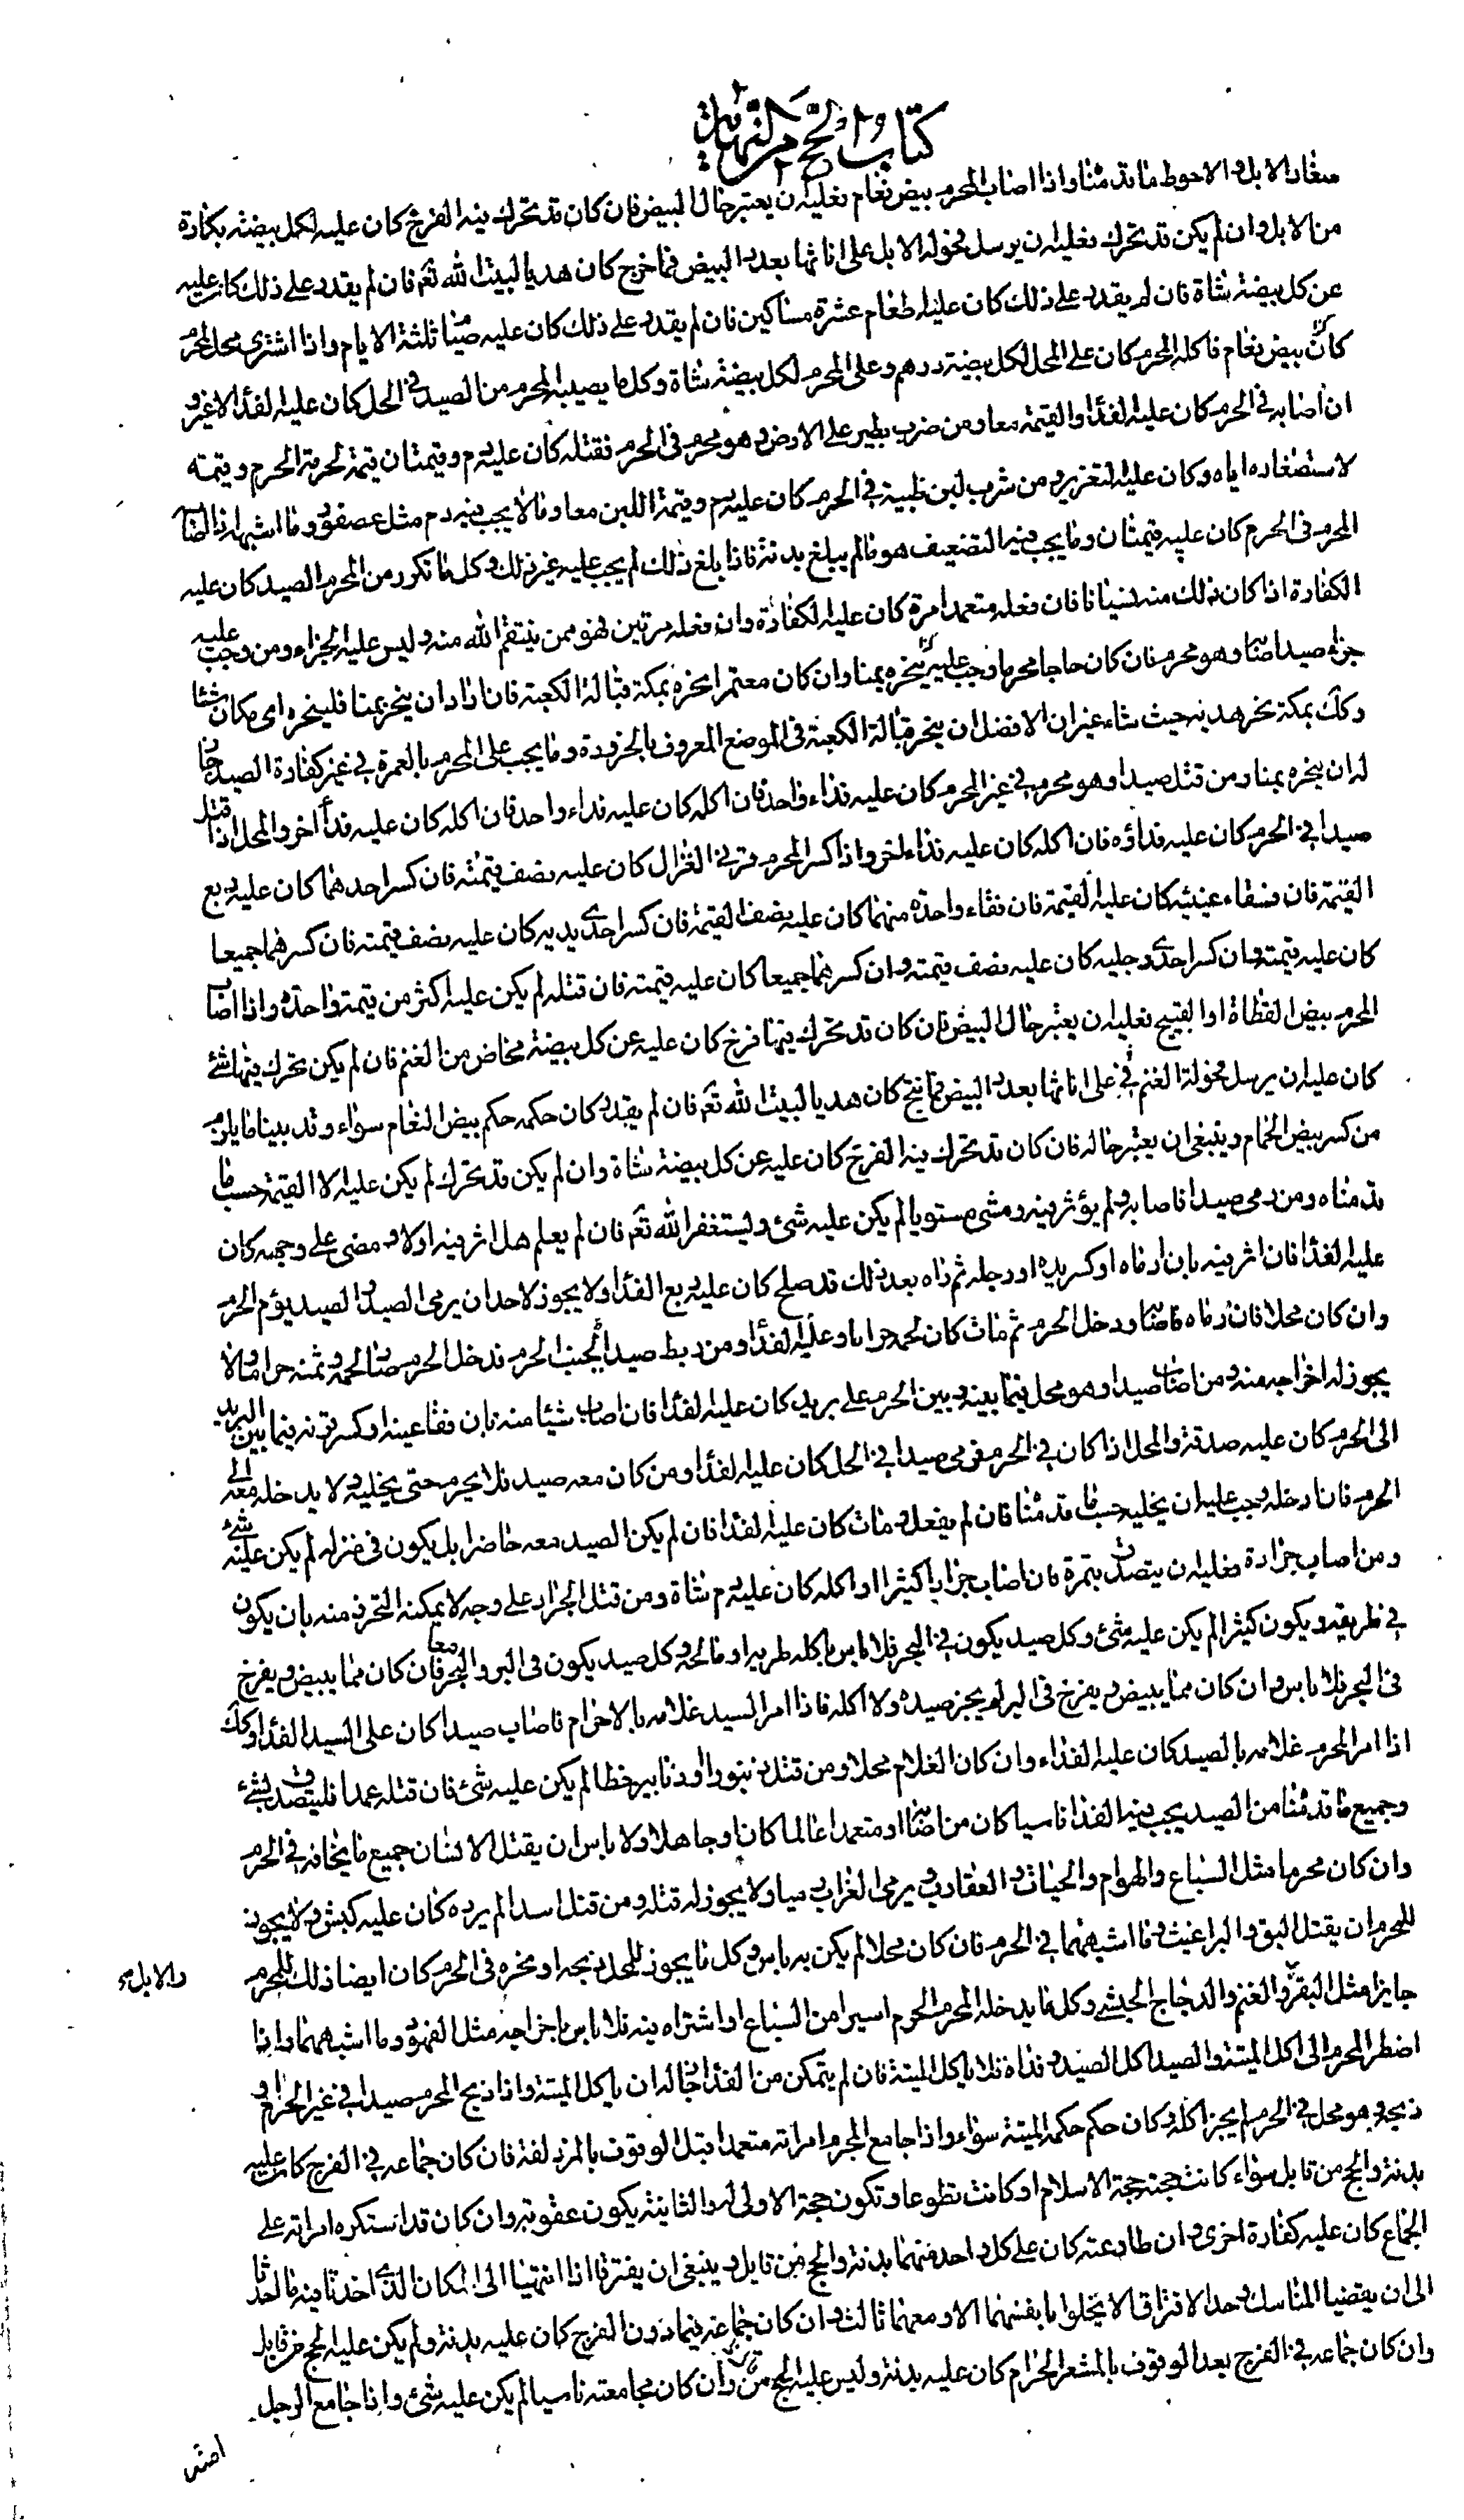 كتاب الحج من النهاية
صغار الابل والاحوط ما قدمناه واذا اصاب المحرم بيض نعام فعليه ان يعتبر حال البيض فان كان قد تحرك فيه الفرخ كان عليه لكل بيضة بكارة
من الابل وان لم يكن قد تحرك فعليه ان يرسل فحولة الابل على اناثها بعدد البيض فما خرج كان هديا لبيت الله تعالى فان لم يقدر على ذلك كان عليه
عن كل بيضة شاة فان لم يقدر على ذلك كان عليه اطعام عشرة مساكين فان لم يقدر على ذلك كان عليه صيام ثلثة الايام واذا اشترى محل لمحرم
بيض نعام فاكله المحرم كان على المحل لكل بيضة درهم وعلى المحرم لكل بيضة شاة وكل ما يصيبه المحرم من الصيد في الحل كان عليه الفداء لا غير و
ان اصابه في الحرم كان عليه الفداء والقيمة معا ومن ضرب بطير على الارض وهو محرم في الحرم فقتله كان عليه دم وقيمتان قيمة لحرمة الحرم وقيمته
لاستصغاره اياه وكان عليه التعزير ومن شرب لبن ظبية في الحرم كان عليه دم وقيمة اللبن معا وما لا يجب فيه دم مثل عصفور وما اشبهه اذا اصابه
المحرم في الحرم كان عليه قيمتان وما يجب فيه التضعيف هو ما لم يبلغ بدنة فاذا بلغ ذلك لم يجب عليه غير ذلك وكل ما تكرر من المحرم الصيد كان عليه
الكفارة اذا كان ذلك منه نسيانا فان فعله متعمدا مرة كان عليه الكفارة وان فعله مرتين فهو ممن ينتقم الله منه وليس عليه الجزاء ومن وجب عليه
جزاء صيد اصابه وهو محرم فان كان حاجا محرما وجب عليه ان ينحره بمنا وان كان معتمرا نحره بمكة قبالة الكعبة فان اراد ان ينحر بمنا فلينحره اى مكان شئا
وكك بمكة نحر هديه حيث شاء غير ان الافضل ان ينحر قبالة الكعبة في الموضع المعروف بالحزورة وما يجب على المحرم بالعمرة في غير كفارة الصيد جاز
له ان ينحره بمنا ومن قتل صيدا وهو محرم في غير الحرم كان عليه فداء واحد فان اكله كان عليه فداء واحد فان اكله كان عليه فداء اخر والمحل اذا قتل
صيدا في الحرم كان عليه فداؤه فان اكله كان عليه فداء اخر واذا كسر المحرم قرني الغزال كان عليه نصف قيمته فان كسر احدهما كان عليه ربع
القيمة فان فقاء عينيه كان عليه القيمة فان فقاء واحدة منهما كان عليه نصف القيمة فان كسر احدى يديه كان عليه نصف قيمته فان كسرهما جميعا
كان عليه قيمته وان كسر احدى رجليه كان عليه نصف قيمته وان كسرهما جميعا كان عليه قيمته فان قتله لم يكن عليه اكثر من قيمة واحدة واذا اصاب
المحرم بيض القطاة او القبج فعليه ان يعتبر حال البيض فان كان قد تحرك فيها فرخ كان عليه عن كل بيضة مخاض من الغنم فان لم يكن تحرك فيها شئ
كان عليه ان يرسل فحولة الغنم في على اناثها بعدد البيض فما نتج كان هديا لبيت الله تعالى فان لم يقدر كان حكمه حكم بيض النعام سواء وقد بينا ما يلزم
من كسر بيض الحمام وينبغى ان يعتبر حاله فان كان قد تحرك فيه الفرخ كان عليه عن كل بيضة شاة وان لم يكن قد تحرك لم يكن عليه الا القيمة حسب ما
قدمناه ومن رمى صيدا فاصابه ولم يؤثر فيه ومشى مستويا لم يكن عليه شئ وليستغفر الله تعالى فان لم يعلم هل اثر فيه او لا ومضى على وجهه كان
عليه الفداء فان اثر فيه بان ادماه او كسر يده او رجله ثم رآه بعد ذلك قد صلح كان عليه ربع الفداء ولا يجوز لاحد ان يرمى الصيد والصيد يؤم الحرم
وان كان محلا فان رماه فاصابه ودخل الحرم ثم مات كان لحمه حراما وعليه الفداء ومن ربط صيدا بجنب الحرم فدخل الحرم صار لحمه وثمنه حراما ولا
يجوز له اخراجه منه ومن اصاب صيدا وهو محل فيما بينه وبين الحرم على بريد كان عليه الفداء فان اصاب شيئا منه بان فقأ عينه او كسر قرنه فيما بين البريد
الى الحرم كان عليه صدقة والمحل اذا كان في الحرم فرمى صيدا في الحل كان عليه الفداء ومن كان معه صيد فلا يحرم حتى يخليه ولا يدخله معه الى
الحرم فان ادخله وجب عليه ان يخليه حسب ما قدمناه فان لم يفعل ومات كان عليه الفداء فان لم يكن الصيد معه حاضرا بل يكون في منزله لم يكن عليه شئ
ومن اصاب جرادة فعليه ان يتصدق بتمرة فان اصاب جرادا كثيرا او اكله كان عليه دم شاة ومن قتل الجراد على وجه لا يمكنه التحرز منه بان يكون
في طريقه ويكون كثيرا لم يكن عليه شئ وكل صيد يكون في البحر فلا باس باكله طريه او مالحه وكل صيد يكون في البر والبحر معا فان كان مما يبيض ويفرخ
في البحر فلا باس وان كان مما يبيض ويفرخ في البر لم يجز صيده ولا اكله فاذا امر السيد غلامه بالاحرام فاصاب صيدا كان على السيد الفداء وكك
اذا امر المحرم غلامه بالصيد كان عليه الفداء وان كان الغلام محلا ومن قتل زنبورا او زنابير خطا لم يكن عليه شئ فان قتله عمدا فليتصدق بشئ
وجميع ما قدمنا من الصيد يجب فيه الفداء ناسيا كان من اصابه او متعمدا عالما كان او جاهلا ولا باس ان يقتل الانسان جميع ما يخافه في الحرم
وان كان محرما مثل السباع والهوام والحيات والعقارب ويرمى الغراب رميا ولا يجوز له قتله ومن قتل اسدا لم يرده كان عليه كبش ولا يجوز
للمحرم ان يقتل البق والبراغيث وما اشبههما في الحرم فان كان محلا لم يكن به باس وكل ما يجوز للمحل ذبحه او نحره في الحرم كان ايضا ذلك للمحرم
والابل
جايزا مثل البقر والغنم والدجاج الحبشي وكل ما يدخله المحرم الحرم اسيرا من السباع او اشتراه فيه فلا باس باخراجه مثل الفهود وما اشبههما واذا
اضطر المحرم الى اكل الميتة والصيد اكل الصيد وفداه فلا ياكل الميتة فان لم يتمكن من الفداء جاز له ان ياكل الميتة واذا ذبح المحرم صيدا في غير الحرم او
ذبحه وهو محل في الحرم لم يجز اكله وكان حكم حكمه الميتة سواء واذا جامع المحرم امراته متعمدا قبل الوقوف بالمزدلفة فان كان جماعه في الفرج كان عليه
بدنة والحج من قابل سواء كانت حجته حجة الاسلام او كانت تطوعا وتكون حجة الاولى له والثانية يكون عقوبة وان كان قد استكره امراته على
الجماع كان عليه كفارة اخرى وان طاوعته كان على كل واحد منهما بدنة والحج من قابل وينبغى ان يفترقا اذا انتهيا الى المكان الذى احدثا فيه ما احدثا
الى ان يقضيا المناسك وحد الافتراق الا يخلوا بانفسهما الا ومعهما ثالث وان كان جماعه فيما دون الفرج كان عليه بدنة ولم يكن عليه الحج من قابل
وان كان جماعه في الفرج بعد الوقوف بالمشعر الحرام كان عليه بدنة وليس عليه الحج من قابل وان كان مجامعته ناسيا لم يكن عليه شئ واذا جامع الرجل
امته